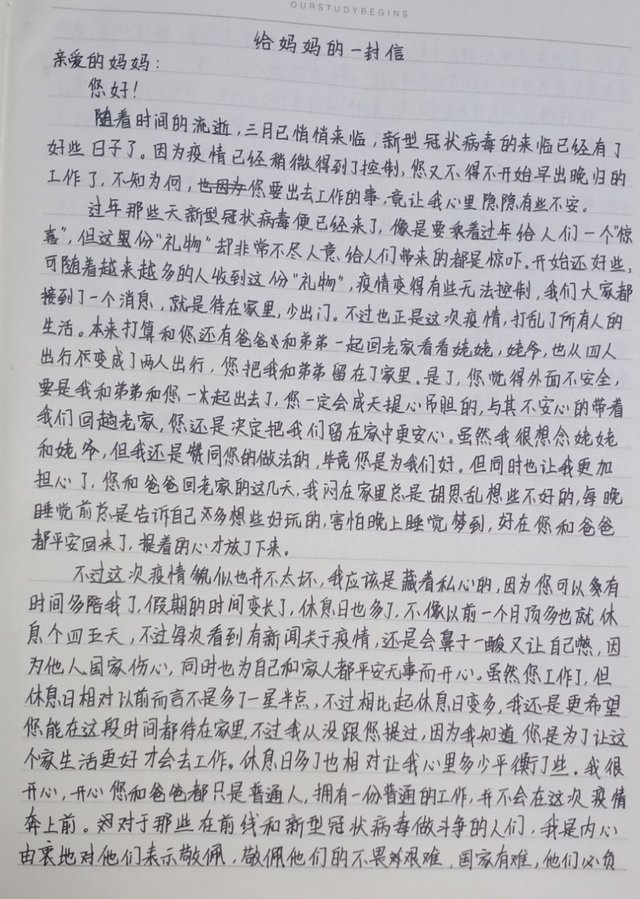 OURSTUDYBEGINS
给妈妈的一封信
亲爱的妈妈：
您好！
随着时间的流逝，三月已悄悄来临，新型冠状病毒的来临已经有了
好些日子了。因为疫情已经稍微得到了控制，您又不得不开始早出晚归的
工作了，不知为何，您要出去工作的事，竟让我心里隐隐有些不安。
过年那些天新型冠状病毒便已经来了，像是要乘着过年给人们一个“惊
喜”，但这里份“礼物”却非常不尽人意，给人们带来的都是惊吓。开始还好些，
可随着越来越多的人收到这份“礼物”，疫情变得有些无法控制，我们大家都
接到了一个消息，就是待在家里，少出门。不过也正是这次疫情，打乱了所有人的
生活。本来打算和您还有爸爸和弟弟一起回老家看看姥姥，姥爷，也从四人
出行变成了两人出行，您把我和弟弟留在了家里。是了，您觉得外面不安全，
要是我和弟弟和您一起出去了，您一定会成天提心吊胆的，与其不安心的带着
我们回趟老家，您还是决定把我们留在家中更安心。虽然我很想念姥姥
和姥爷，但我还是赞同您的做法的，毕竟您是为我们好。但同时也让我更加
担心了，您和爸爸回老家的这几天，我闷在家里总是胡思乱想些不好的，每晚
睡觉前总是告诉自己多想些好玩的，害怕晚上睡觉梦到，好在您和爸爸
都平安回来了，提着的心才放了下来。
不过这次疫情貌似也并不太坏，我应该是藏着私心的，因为您可以有
时间多陪我了，假期的时间变长了，休息日也多了，不像以前一个月顶多也就休
息个四五天，不过每次看到有新闻关于疫情，还是会鼻子一酸又让自己憋，因
为他人、国家伤心，同时也为自己和家人都平安无事而开心。虽然您工作了，但
休息日相对以前而言不是多了一星半点，不过相比起休息日变多，我还是更希望
您能在这段时间都待在家里，不过我从没跟您提过，因为我知道您是为了让这
个家生活更好才会去工作。休息日多了也相对让我心里多少平衡了些。我很
开心，开心您和爸爸都只是普通人，拥有一份普通的工作，并不会在这次疫情
奔上前。对于那些在前线和新型冠状病毒做斗争的人们，我是内心
由衷地对他们表示敬佩，敬佩他们的不畏艰难，国家有难，他们必负